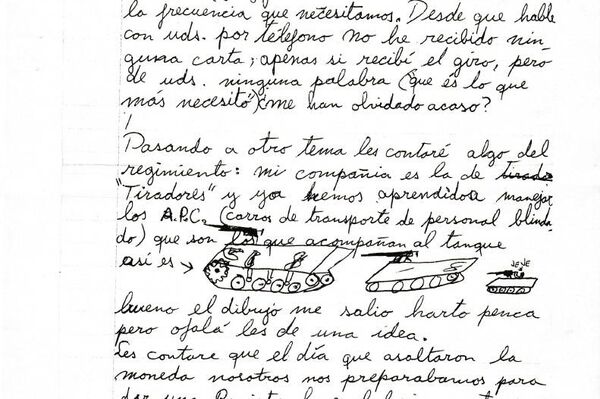 la frecuencia que necesitamos. Desde que hable
con uds. por teléfono no he recibido nin-
guna carta; apenas si recibí el giro, pero
de uds. ninguna palabra (que es lo que
más necesito) ¿me han olvidado acaso?
Pasando a otro tema les contaré algo del
regimiento: mi compañia es la de
"Tiradores" y ya hemos aprendido a manejar
los A.P.C. (carros de transporte de personal blinda
do) que son los que acompañan al tanque
asi es →
JEJE
bueno el dibujo me salio harto penca
pero ojalá les de una idea.
Les contare que el día que asaltaron la
moneda nosotros nos preparabamos para